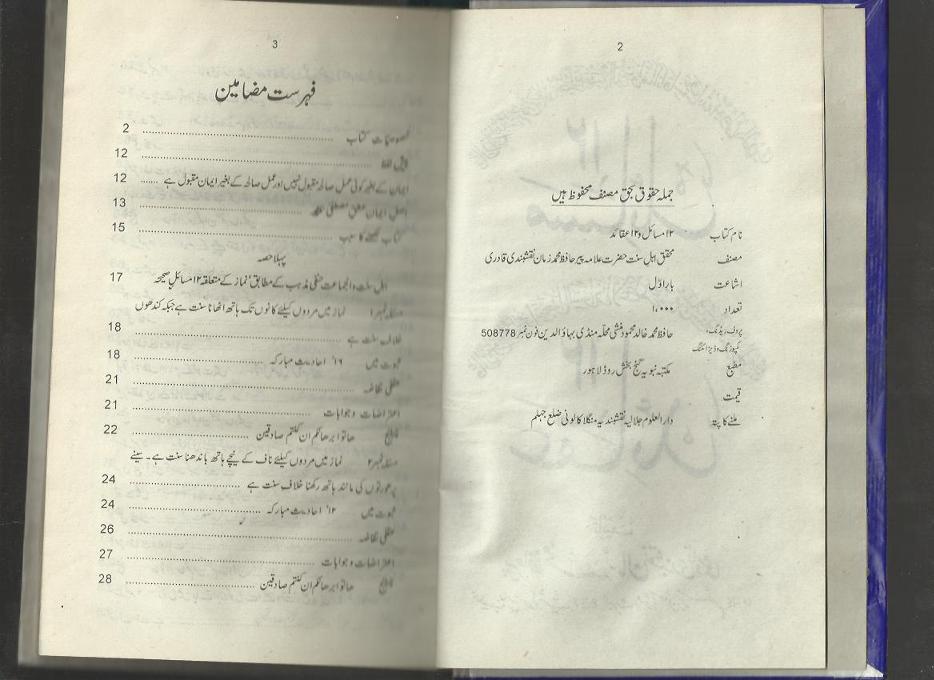 2
جملہ حقوق بحق مصنف محفوظ ہیں
نام کتاب ۱۲ مسائل و ۱۲ عقائد
مصنف محقق اہل سنت حضرت علامہ پیر حافظ محمد زمان نقشبندی قادری
اشاعت بار اوّل
تعداد ۱,۰۰۰
پروف ریڈنگ، حافظ محمد خالد محمود منشی محلہ منڈی بہاؤ الدین فون نمبر 508778
کمپوزنگ و ڈیزائننگ
مطبع مکتبہ نبویہ گنج بخش روڈ لاہور
قیمت
ملنے کا پتہ دارالعلوم جلالیہ نقشبندیہ منگلا کالونی ضلع جہلم
3
فہرست مضامین
خصوصیات کتاب 2
پیش لفظ 12
ایمان کے بغیر کوئی عمل صالحہ مقبول نہیں اور عمل صالحہ کے بغیر ایمان مقبول ہے 12
اصل ایمان عشق مصطفیٰ ﷺ 13
کتاب لکھنے کا سبب 15
پہلا حصہ
اہل سنت والجماعت حنفی مذہب کے مطابق نماز کے متعلقہ ۱۲ مسائل صحیحہ 17
مسئلہ نمبر ۱ نماز میں مردوں کیلئے کانوں تک ہاتھ اٹھانا سنت ہے جبکہ کندھوں
خلاف سنت ہے 18
ثبوت میں '۱۶ احادیث مبارکہ 18
عقلی تقاضہ 21
اعتراضات و جوابات 21
ھاتوا برھانکم ان کنتم صادقین 22
مسئلہ نمبر ۲ نماز میں مردوں کیلئے ناف کے نیچے ہاتھ باندھنا سنت ہے۔ سینے
پر عورتوں کی مانند ہاتھ رکھنا خلاف سنت ہے 24
ثبوت میں '۱۲ احادیث مبارکہ 24
عقلی تقاضہ 26
اعتراضات و جوابات 27
ھاتوا برھانکم ان کنتم صادقین 28